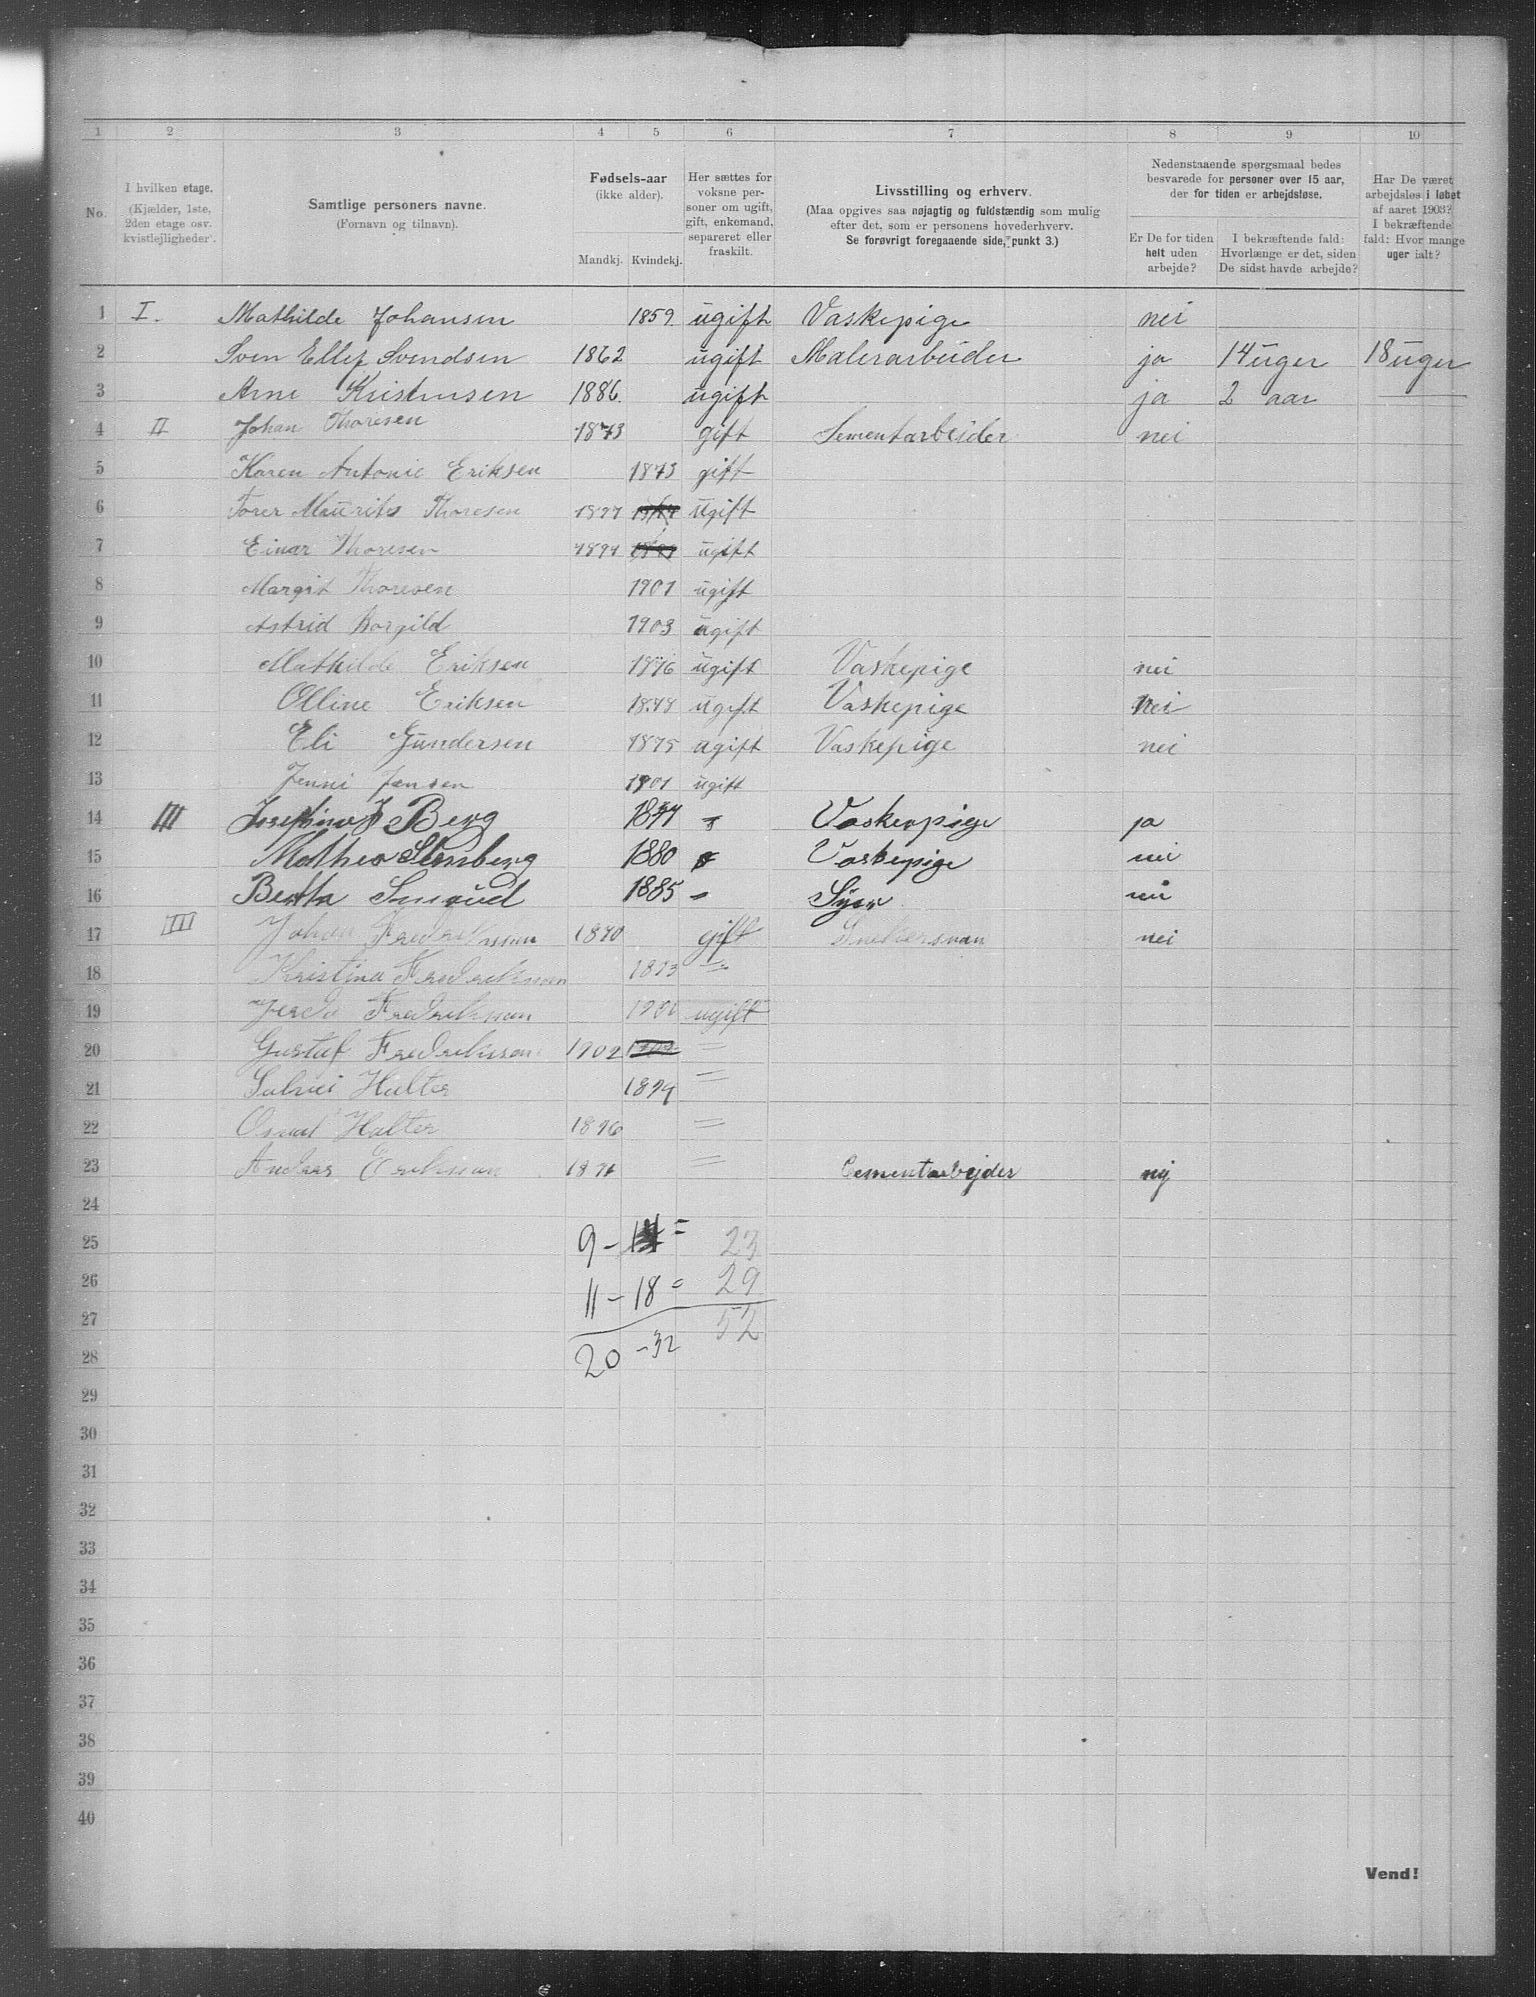 1 2 3 4 5 6 7 8 9 10
No.
I hvilken etage.
(Kjælder, 1ste,
2den etage osv.
kvistlejligheder.
Samtlige personers navne.
(Fornavn og tilnavn).
Fødsels-aar
(ikke alder).
Mandkj. Kvindekj.
Her sættes for
voksne per-
soner om ugift,
gift, enkemand,
separeret eller
fraskilt.
Livsstilling og erhverv.
(Maa opgives saa nøjagtig og fuldstændig som mulig
efter det, som er personens hovederhverv.
Se forøvrigt foregaaende side, punkt 3.)
Nedenstaaende spørgsmaal bedes
besvarede for personer over 15 aar,
der for tiden er arbejdsløse.
Er De for tiden
helt uden
arbejde?
I bekræftende fald:
Hvorlænge er det, siden
De sidst havde arbejde?
Har De været
arbejdsløs i løbet
af aaret 1903?
I bekræftende
fald: Hvor mange
uger ialt?
1 I. Mathilde Johansen 1859 ugift Vaskepige nei
2 Sven Ellef Svendsen 1862 ugift Malerarbeider ja 14 uger 18 uger
3 Arne Kristensen 1886. ugift ja 2 aar
4 II Johan Thoresen 1873 gift Sementarbeider nei
5 Karen Antonie Eriksen 1873 gift
6 Torer Maurits Thoresen 1897 ugift
7 Einar Thoresen 1897 ugift
8 Margit Thoresen 1901 ugift
9 Astrid Borgild 1903 ugift
10 Mathilde Eriksen 1876 ugift Vaskepige nei
11 Olline Eriksen ugift Vaskepige nei
12 Eli Gundersen 1875 ugift Vaskepige nei
13 Jenni Jensen 1901 ugift
14 III Berg 1877 " Vaskepige ja
15 Mathea Stensberg 1880 " Vaskepige nei
16 Berta 1885 " Syer nei
17 III Johan Fredriksson 1870 gift Snekersvan nei
18 Kristina Fredriksson 1873 "
19 Fredriksson ugift
20 Gustaf Fredriksson 1902 "
21 Halter "
22 Halter 1896 "
23 Andreas Eriksson "  Cementarbejder nej
24
25 9 - 14 = 23
26 11 - 18 = 29
27 52
28 20 - 32
29
30
31
32
33
34
35
36
37
38
39
40
Vend!